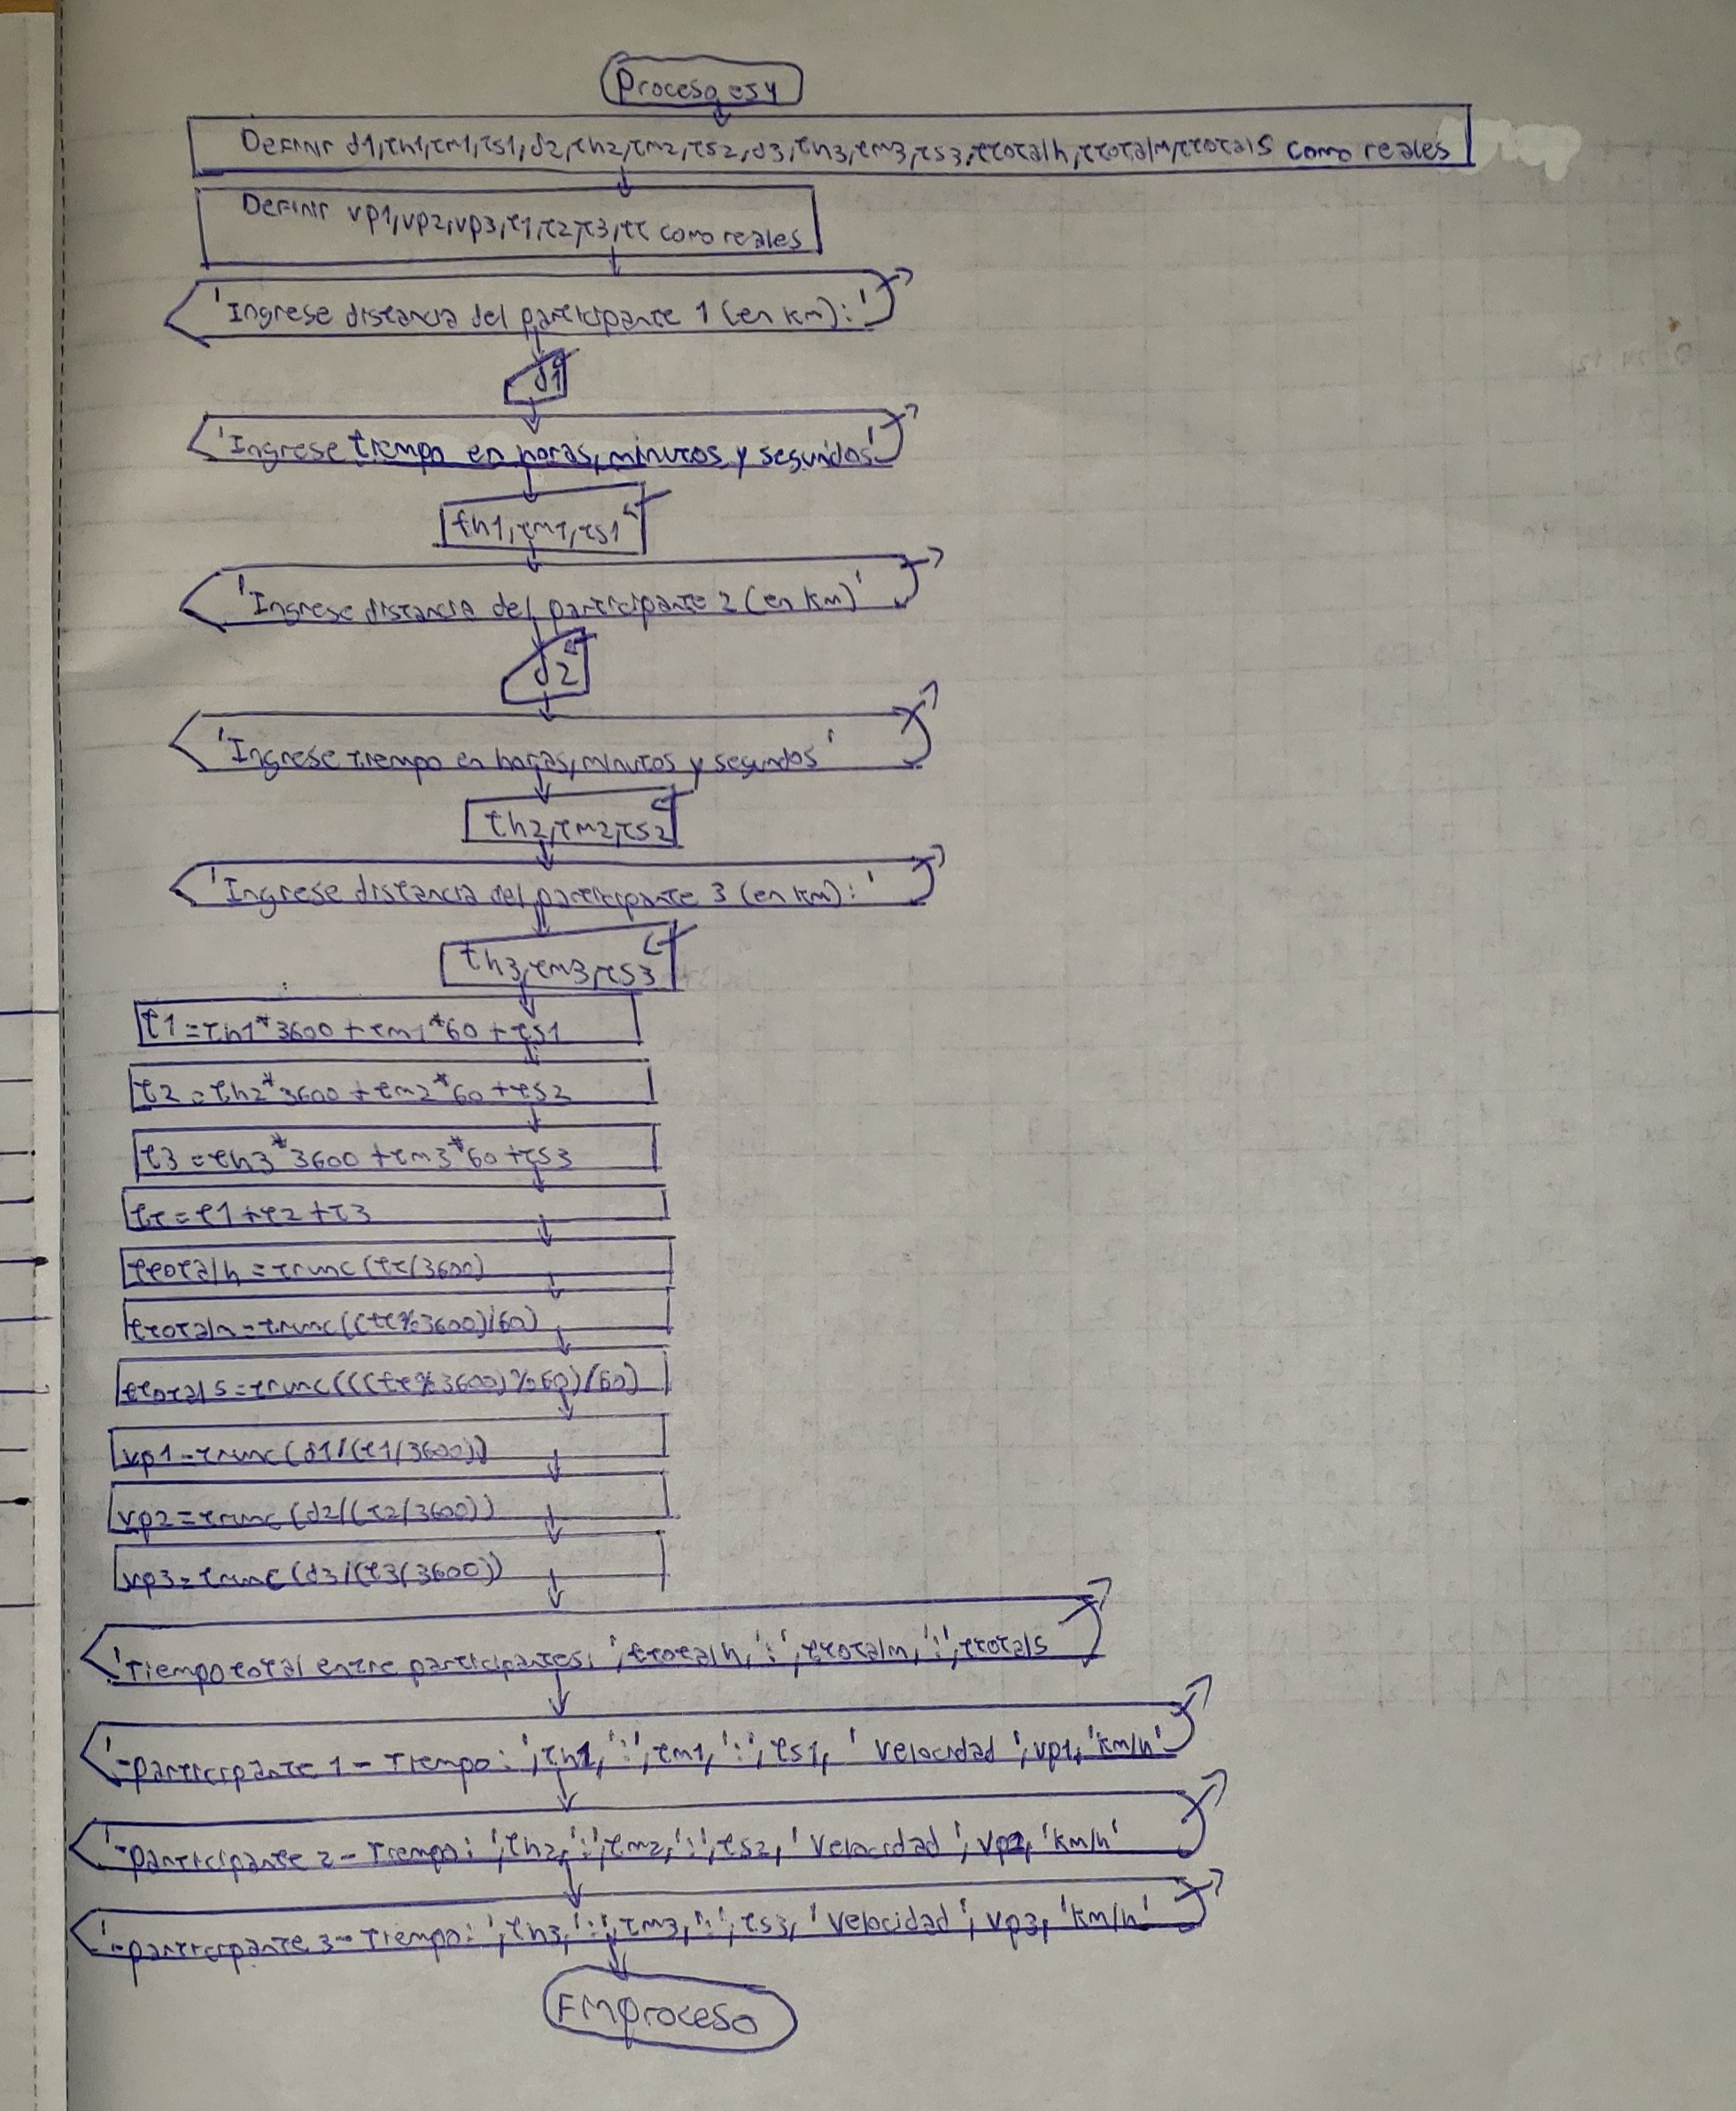 Proceso es4
Definir d1,th1,tm1,ts1,d2,th2,tm2,ts2,d3,th3,tm3,ts3,ttotalh,ttotalm,ttotals como reales
Definir vp1,vp2,vp3,t1,t2,t3,tt como reales
'Ingrese distancia del participante 1 (en km):'
d1
'Ingrese tiempo en horas, minutos y segundos'
th1,tm1,ts1
'Ingrese distancia del participante 2 (en km)'
d2
'Ingrese tiempo en horas, minutos y segundos'
th2,tm2,ts2
'Ingrese distancia del participante 3 (en km):'
th3,tm3,ts3
t1=th1*3600+tm1*60+ts1
t2=th2*3600+tm2*60+ts2
t3=th3*3600+tm3*60+ts3
tt=t1+t2+t3
ttotalh=trunc(tt/3600)
ttotalm=trunc((tt%3600)/60)
ttotals=trunc(((tt%3600)%60)/60)
vp1=trunc(d1/(t1/3600))
vp2=trunc(d2/(t2/3600))
vp3=trunc(d3/(t3/3600))
'Tiempo total entre participantes: ',ttotalh,':',ttotalm,':',ttotals
'-participante 1 - Tiempo: ',th1,':',tm1,':',ts1, ' Velocidad ',vp1,'km/h'
'-participante 2 - Tiempo: ',th2,':',tm2,':',ts2, ' Velocidad ', vp2, 'km/h'
'-participante 3 - Tiempo: ',th3,':',tm3,':',ts3, ' Velocidad ', vp3, 'km/h'
Finproceso